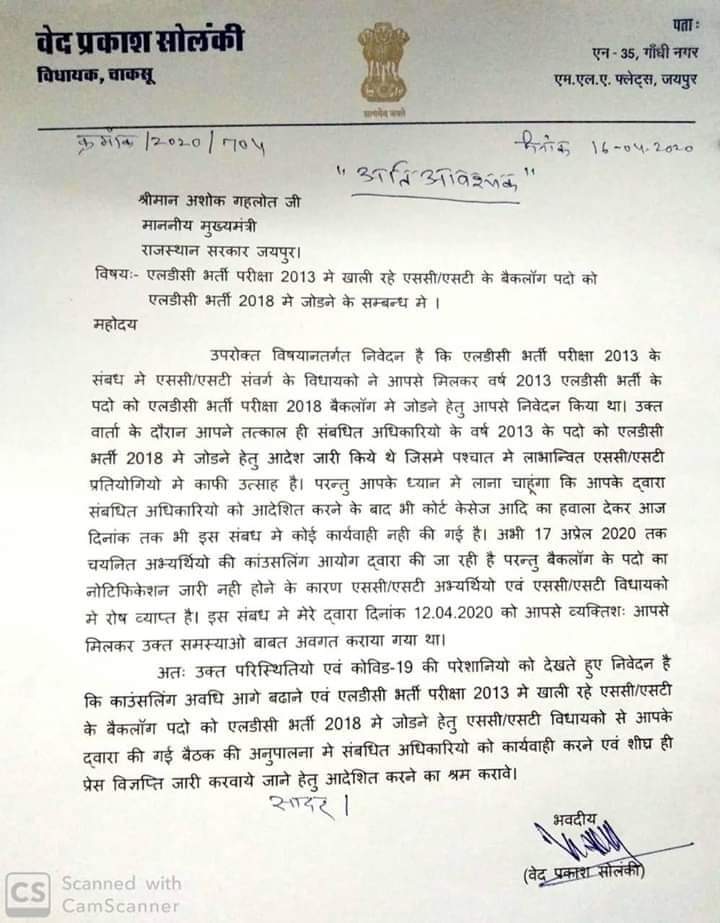 वेद प्रकाश सोलंकी
विधायक, चाकसू
सत्यमेव जयते
पता:
एन - 35, गाँधी नगर
एम.एल.ए. फ्लेट्स, जयपुर
क्रमाँक /2020/704
दिनांक 16-04-2020
"अति आवश्यक"
श्रीमान अशोक गहलोत जी
माननीय मुख्यमंत्री
राजस्थान सरकार जयपुर।
विषय:- एलडीसी भर्ती परीक्षा 2013 मे खाली रहे एससी/एसटी के बैकलॉग पदो को
एलडीसी भर्ती 2018 मे जोडने के सम्बन्ध मे ।
महोदय
उपरोक्त विषयानतर्गत निवेदन है कि एलडीसी भर्ती परीक्षा 2013 के
संबध मे एससी/एसटी संवर्ग के विधायको ने आपसे मिलकर वर्ष 2013 एलडीसी भर्ती के
पदो को एलडीसी भर्ती परीक्षा 2018 बैकलॉग मे जोडने हेतु आपसे निवेदन किया था। उक्त
वार्ता के दौरान आपने तत्काल ही संबधित अधिकारियो के वर्ष 2013 के पदो को एलडीसी
भर्ती 2018 मे जोडने हेतु आदेश जारी किये थे जिसमे पश्चात मे लाभान्वित एससी/एसटी
प्रतियोगियो मे काफी उत्साह है। परन्तु आपके ध्यान मे लाना चाहूंगा कि आपके द्वारा
संबधित अधिकारियो को आदेशित करने के बाद भी कोर्ट केसेज आदि का हवाला देकर आज
दिनांक तक भी इस संबध मे कोई कार्यवाही नही की गई है। अभी 17 अप्रेल 2020 तक
चयनित अभ्यर्थियो की कांउसलिंग आयोग द्वारा की जा रही है परन्तु बैकलॉग के पदो का
नोटिफिकेशन जारी नही होने के कारण एससी/एसटी अभ्यर्थियो एवं एससी/एसटी विधायको
मे रोष व्याप्त है। इस संबध मे मेरे द्वारा दिनांक 12.04.2020 को आपसे व्यक्तिश: आपसे
मिलकर उक्त समस्याओ बाबत अवगत कराया गया था।
अत: उक्त परिस्थितियो एवं कोविड-19 की परेशानियो को देखते हुए निवेदन है
कि काउंसलिंग अवधि आगे बढाने एवं एलडीसी भर्ती परीक्षा 2013 मे खाली रहे एससी/एसटी
के बैकलॉग पदो को एलडीसी भर्ती 2018 मे जोडने हेतु एससी/एसटी विधायको से आपके
द्वारा की गई बैठक की अनुपालना मे संबधित अधिकारियो को कार्यवाही करने एवं शीघ्र ही
प्रेस विज्ञप्ति जारी करवाये जाने हेतु आदेशित करने का श्रम करावे।
सादर।
भवदीय
(वेद प्रकाश सोलंकी)
CS Scanned with
CamScanner